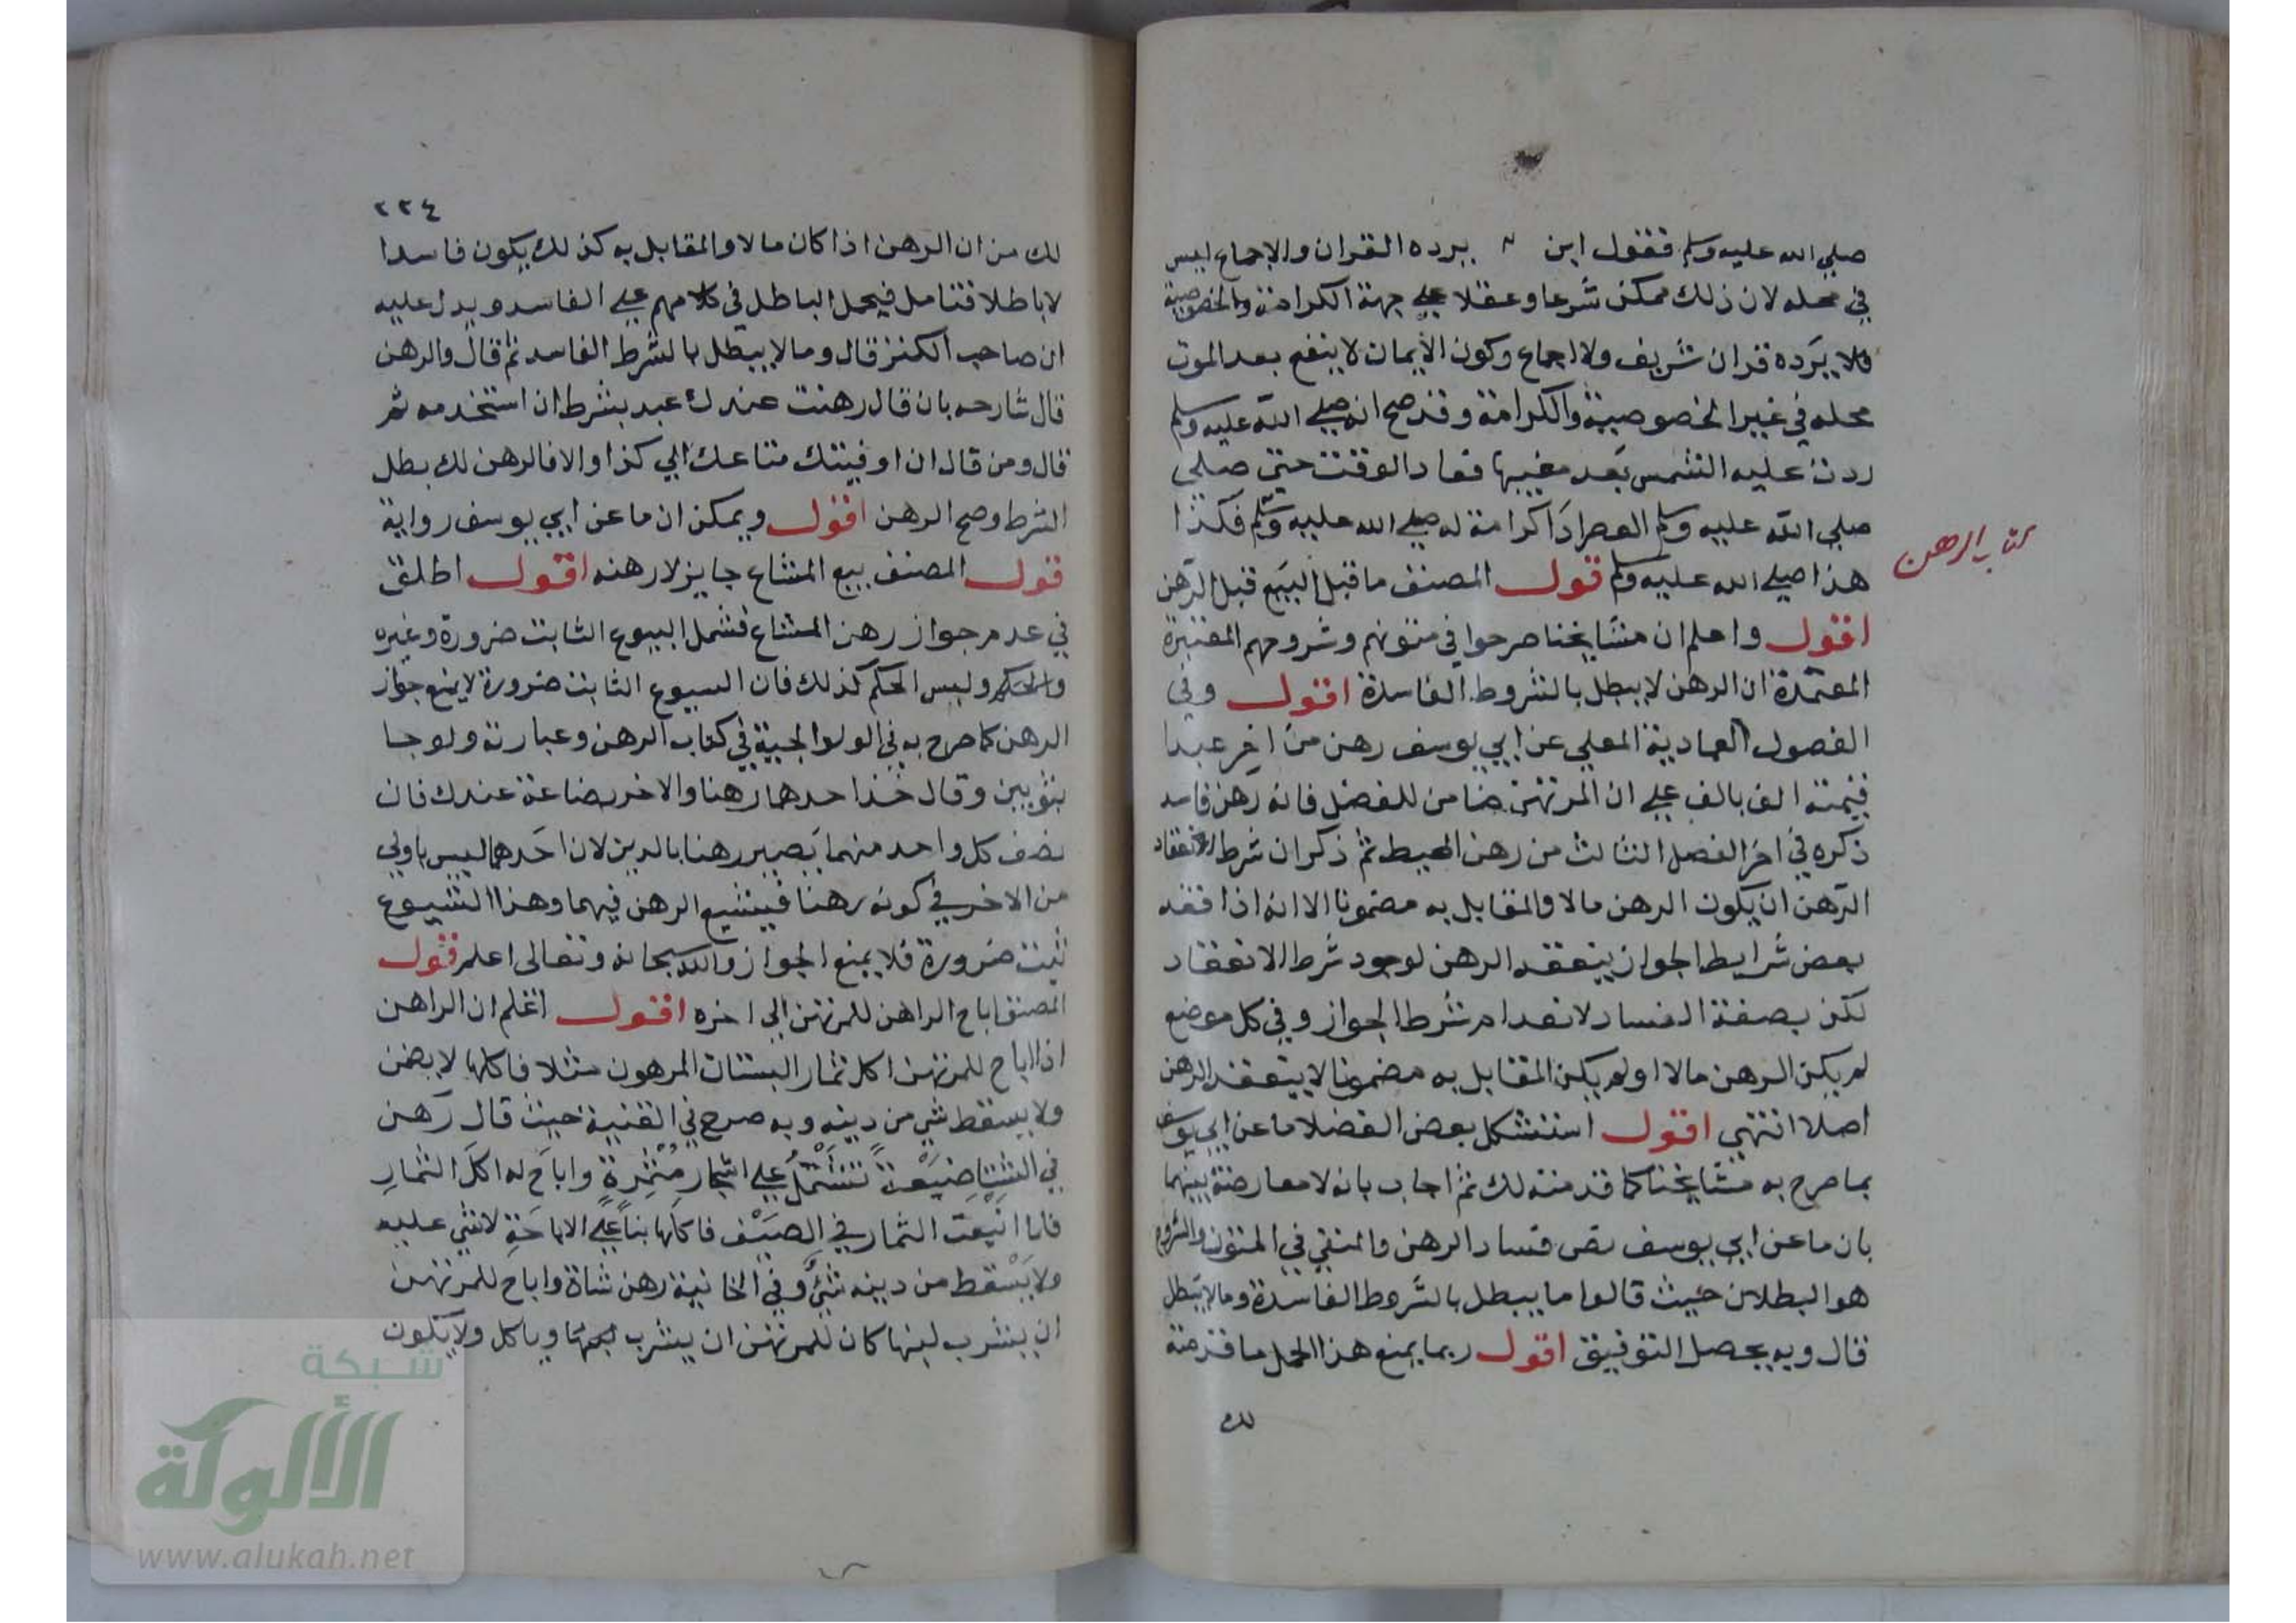 صلي الله عليه وسلم فقول ابن يرده القران والاجماع ليس
في محله لان ذلك ممكن شرعا وعقلا علي جهة الكرامة والخصوصية
فلا يرده قران شريف ولا اجماع وكون الايمان لا ينفع بعد الموت
محله في غير الخصوصية والكرامة وقد صح انه صلي الله عليه وسلم
ردت عليه الشمس بعد مغيبها فعاد الوقت حتي صلي
صلي الله عليه وسلم العصر اداكرامة له صلي الله عليه وسلم فكذا
هذا صلي الله عليه وسلم قول المصنف ما قبل البيع قبل الرهن
كتاب الرهن
اقول واعلم ان مشايخنا صرحوا في متونهم وشروحهم المعتبرة
المعتمدة ان الرهن لا يبطل بالشروط الفاسدة اقول وفي
الفصول العمادية المعلي عن ابي يوسف رهن من اخر عبدا
قيمته الف بالف علي ان المرتهن ضامن للفضل فانه رهن فاسد
ذكره في اخر الفصل الثالث من رهن المحيط ثم ذكر ان شرط الانعقاد
الرهن ان يكون الرهن مالا والمقابل به مضمونا الا انه اذا فقد
بعض شرايط الجواز ينعقد الرهن لوجود شرط الانعقاد
لكن بصفة الفساد لانعدام شرط الجواز وفي كل موضع
لم يكن الرهن مالا اولم يكن المقابل به مضمونا لا ينعقد الرهن
اصلا انتهي اقول استشكل بعض الفضلا ما عن ابي يوسف
بما صرح به مشايخنا كما قدمته لك ثم اجاب بانه لا معارضة بينهما
بان ما عن ابي يوسف نص فساد الرهن والمنفي في المتون والشروح
هو البطلان حيث قالوا ما يبطل بالشروط الفاسدة وما لا يبطل
قال وبه يحصل التوفيق اقول ربما يمنع هذا الحمل ما قدمته
لك
٢٢٤
لك من ان الرهن اذا كان مالا والمقابل به كذلك يكون فاسدا
لا باطلا فتامل فيحمل الباطل في كلامهم علي الفاسد ويدل عليه
ان صاحب الكنز قال وما لا يبطل بالشرط الفاسد ثم قال والرهن
قال شارحه بان قال رهنت عندك عبد بشرط ان استخدمه ثم
قال ومن قال ان اوفيتك متاعك الي كذا والا فالرهن لك بطل
الشرط وصح الرهن اقول ويمكن ان ما عن ابي يوسف رواية
قول المصنف بيع المشاع جايز لا رهنه اقول اطلق
في عدم جواز رهن المشاع فشمل البيوع الثابت ضرورة وغيره
والحكم وليس الحكم كذلك فان السيوع الثابت ضرورة لا يمنع جواز
الرهن كما صرح به في الولوالجية في كتاب الرهن وعبارته ولو جا
بثوبين وقال خذ احدهما رهنا والاخر بضاعة عندك فان
نصف كل واحد منهما يصير رهنا بالدين لان احدهما ليس باولي
من الاخر في كونه رهنا فيشيع الرهن فيهما وهذا الشيوع
ثبت ضرورة فلا يمنع الجواز والله سبحانه وتعالي اعلم قول
المصنف اباح الراهن للمرتهن الي اخره اقول اعلم ان الراهن
اذا اباح للمرتهن اكل ثمار البستان المرهون مثلا فاكلها لا يضمن
ولا يسقط شي من دينه وبه صرح في القنية حيث قال رهن
في الشتا ضيعة تشتمل علي اشجار مثمرة واباح له اكل الثمار
فلما اينعت الثمار في الصيف فاكلها بنا علي الاباحة لا شي عليه
ولا يسقط من دينه شي وفي الخانية رهن شاة واباح للمرتهن
ان يشرب لبنها كان للمرتهن ان يشرب لبنها وياكل ولا يكون
شبكة
الألوكة
www.alukah.net